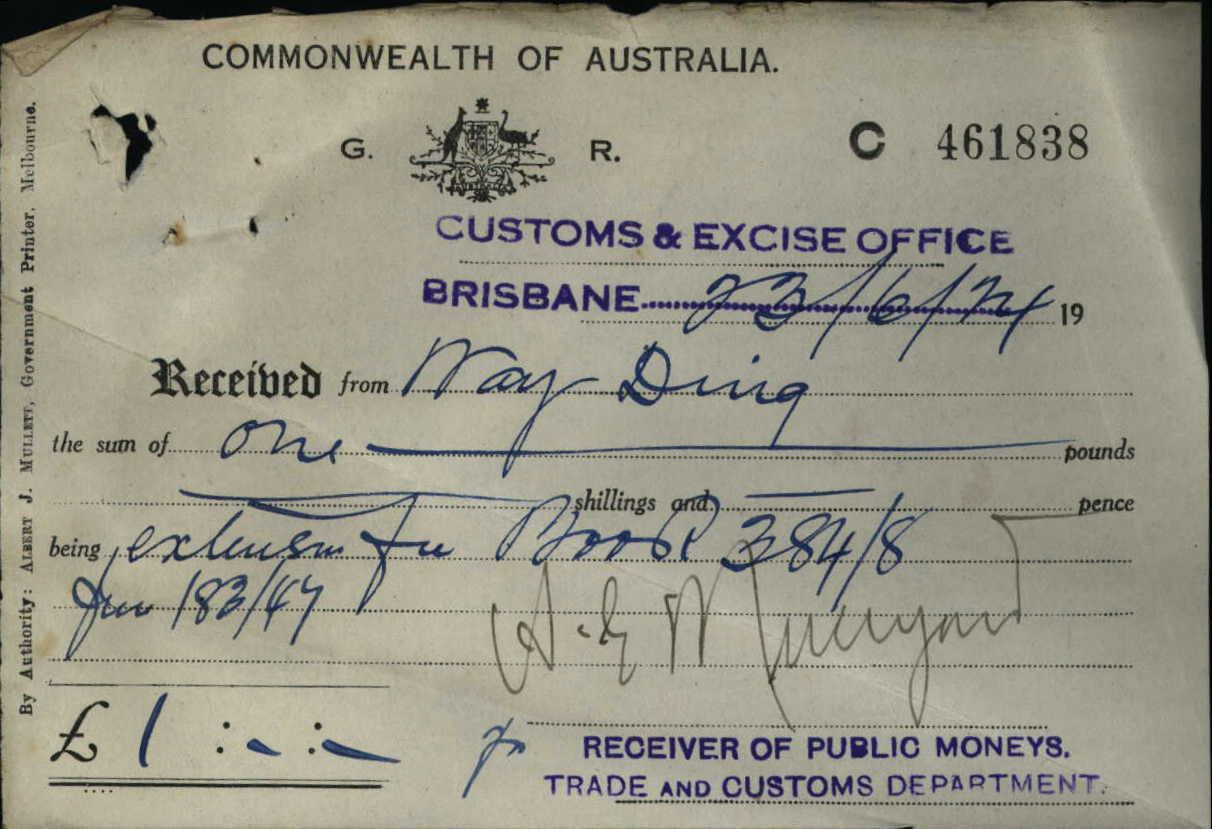 COMMONWEALTH OF AUSTRALIA.
G. R.
C 461838
CUSTOMS & EXCISE OFFICE
BRISBANE 23/6/24 19
Received from Way Ding
the sum of one pounds
shillings and pence
being extension fee Book 384/8
183/47
A. E. W.
£ 1 : - : -
RECEIVER OF PUBLIC MONEYS.
TRADE AND CUSTOMS DEPARTMENT.
By Authority: ALBERT J. MULLETT, Government Printer, Melbourne.